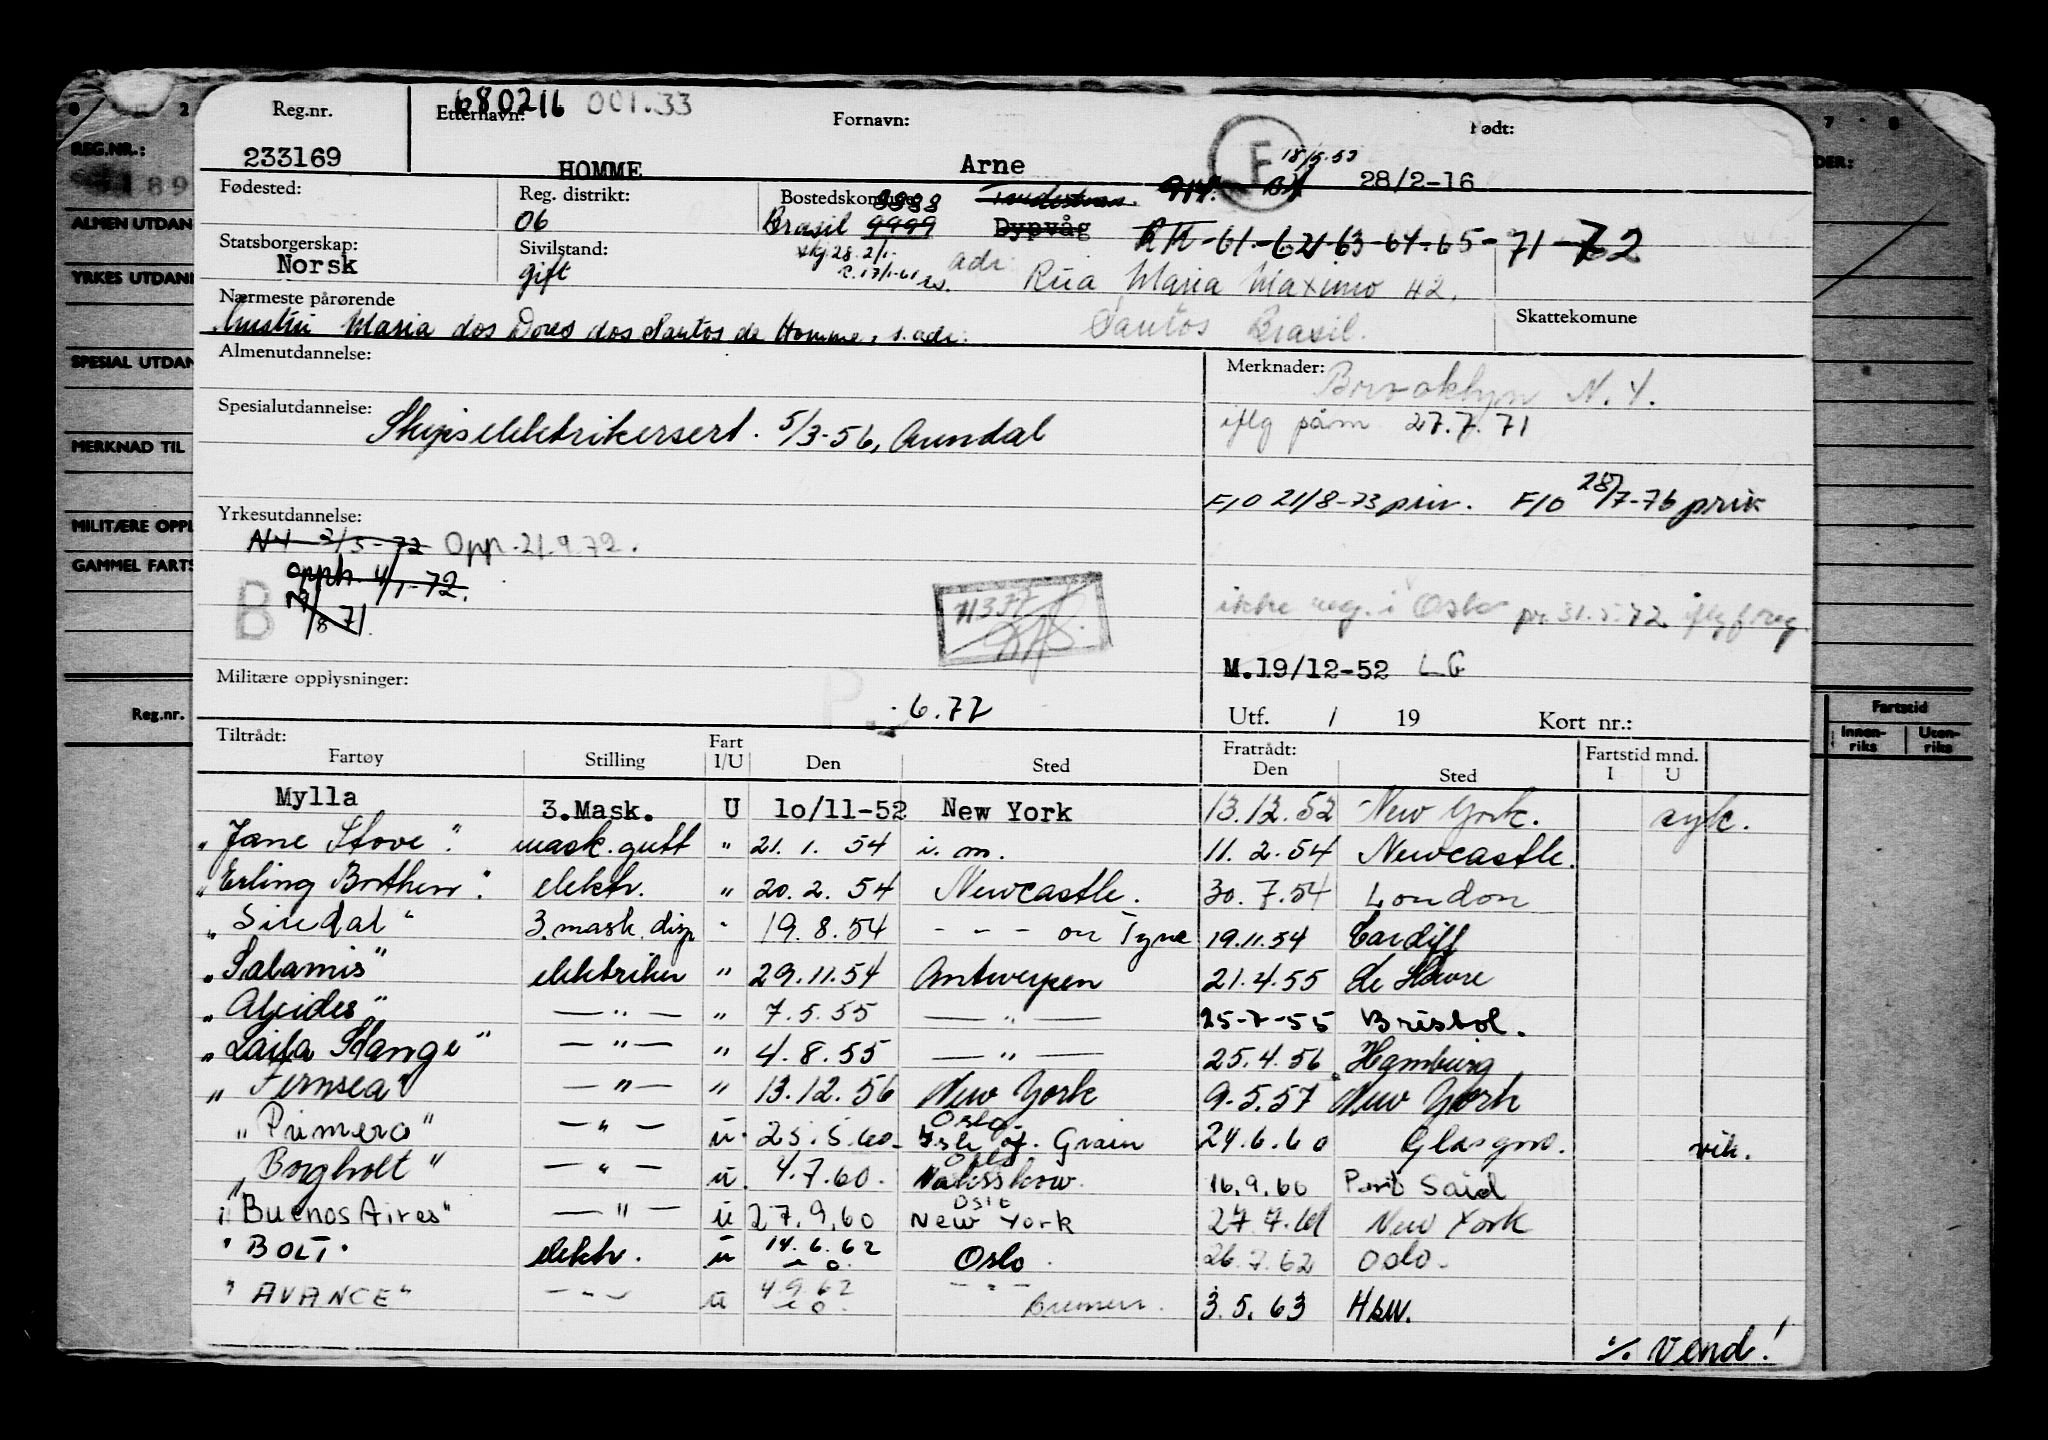 Reg.nr. Etternavn: 680216 001.33 Fornavn: Født:
233169 HOMME Arne F 18/5.53 28/2-16
Fødested: Reg. distrikt: Bostedskomune: 9988
06 Brasil 9999 Dypvåg RM-61-62 63-64-65-71-72
Statsborgerskap: Sivilstand: adr:
Norsk gift Rua Maria Maximo 42.
Nærmeste pårørende Skattekomune
hustru Maria dos Dores dos Santos de Homme, s. adr: Santos Brasil.
Almenutdannelse: Merknader: Brooklyn N.Y.
iflg påm 27.7.71
Spesialutdannelse: Skipselektrikersert. 5/3-56, Arendal
F/O 21/8-73 priv. F/O 28/7-76 priv
Yrkesutdannelse:
N4 2/5-72 Opp. 21.9.72.
opph. 4/1-72.
B
71337
ikke reg. i Oslo pr. 31.5.72 iflg f.reg.
M.19/12-52 LG
Militære opplysninger: P.
6.77
Utf. / 19 Kort nr.:
Tiltrådt: Fratrådt: Fartstid mnd.
Fartøy Stilling Fart I/U Den Sted Den Sted I U
Mylla 3.Mask. U 10/11-52 New York 13.12.52 New York. syk.
"Jane Stove". mask.gutt " 21. 1. 54 i. m. 11. 2.54 Newcastle.
"Erling Borthen". elektr. " 20.2. 54 Newcastle. 30. 7.54 London
"Siredal" 3.mask. disp " 19. 8. 54 - - - on Tyne 19.11.54 Cardiff
"Salamis" elektriker " 29.11.54 Antwerpen 21.4.55 le Havre
"Alcides" — " — " 7.5.55 — " — 25-7-55 Bristol.
"Laila Stange" — " — " 4.8.55 — " — 25.4.56 Hamburg
"Fernsea" — " — " 13.12.56 New York 9.5.57 New York
"Primero" — " — u. 25.5.60 Oslo Isle of Grain 24.6.60 Glasgow. vik.
"Borgholt" — " — u. 4.7.60. Oslo Nakskow. 16.9.60 Port Said
"Buenos Aires" — " — u 27.9.60 Oslo New York 27.7.61 New York
"BOLT" elektr. u 14.6.62 Oslo. 26.7.62 Oslo.
"AVANCE" — " — u 4.9.62 — " — Bremen. 3.5.63 Hbw.
%. Vend!
REG.NR.:
89
ALMEN UTDAN
YRKES UTDAN
SPESIAL UTDAN
MERKNAD TIL
MILITÆRE OPPL
GAMMEL FARTS
Reg.nr.
DER:
Fartstid
Innen-riks Uten-riks